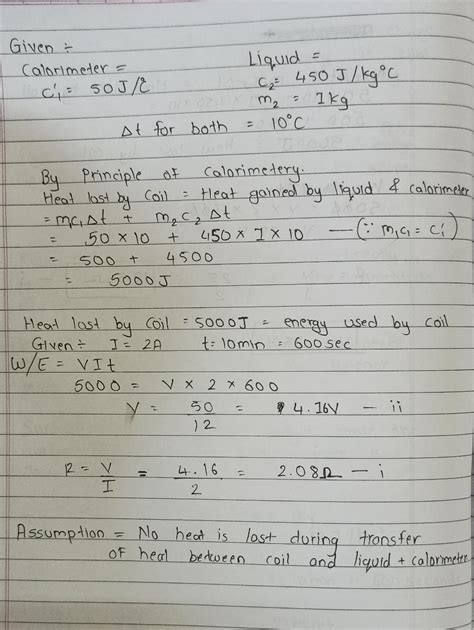 Given ÷
Calorimeter =
c₁' = 50 J/°C
Liquid =
c₂ = 450 J/kg°C
m₂ = 1kg
Δt for both = 10°C
By Principle of Calorimetery.
Heat lost by Coil = Heat gained by liquid & calorimeter
= mc₁Δt + m₂c₂Δt
= 50 × 10 + 450 × 1 × 10 — (∵ m₁c₁ = c₁')
= 500 + 4500
= 5000J
Heat lost by coil = 5000J = energy used by coil
Given ÷ I = 2A t = 10min = 600sec
W/E = VIt
5000 = V × 2 × 600
V = 50/12 = 4.16V — ii
R = V/I = 4.16/2 = 2.08Ω — i
Assumption = No heat is lost during transfer
of heat between coil and liquid + calorimeter